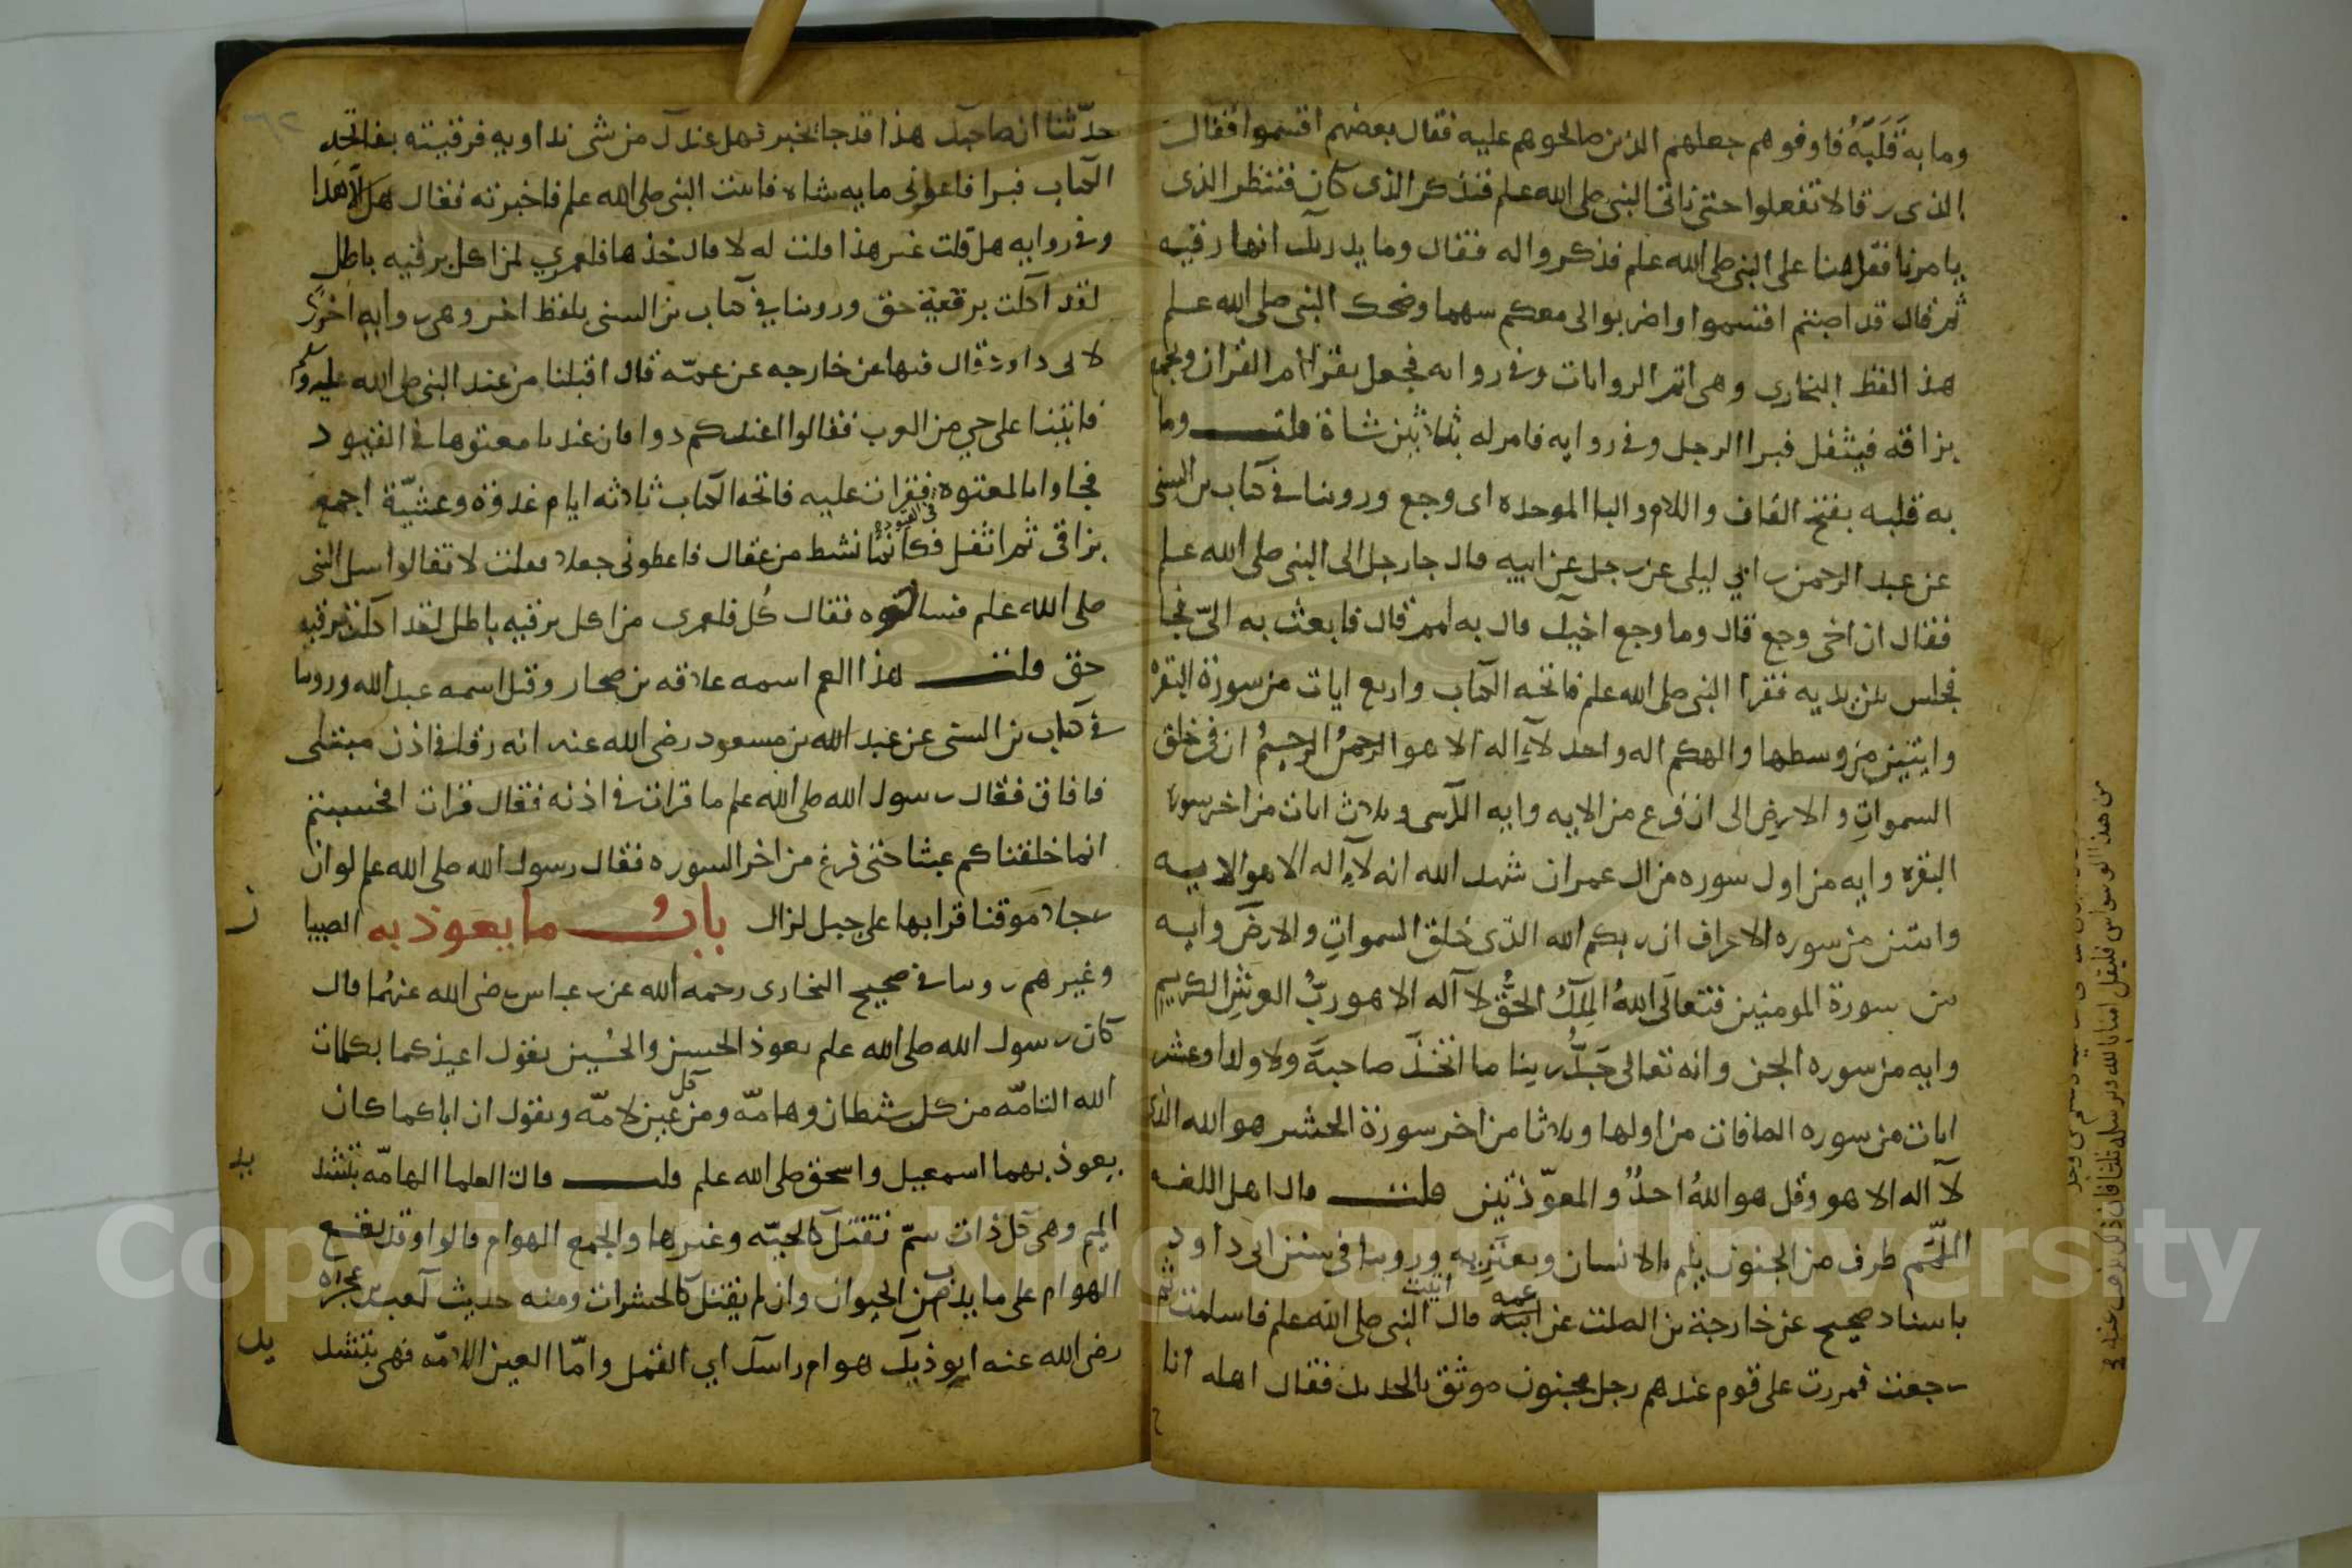 وما به قَلَبَةٌ فاوفوهم جعلهم الذين صالحوهم عليه فقال بعضهم اقتسموا فقال
الذى رقا لا تفعلوا حتى ناتى النبى صلى الله علم فنذكر الذى كان فننظر الذى
يامرنا فقدمنا على النبى صلى الله علم فذكروا له فقال وما يدريك انها رقيه
ثم قال قد اصبتم اقتسموا واضربوا لى معكم سهما وضحك النبى صلى الله علم
هذا لفظ البخارى وهى اتم الروايات وفى روايه فجعل يقرا ام القران ويجمع
بزاقه فيتفل فبرا الرجل وفى روايه فامر له بثلاثين شاة قلت وما
به قلبه بفتح القاف واللام والبا الموحده اى وجع وروينا فى كتاب بن السنى
عن عبد الرحمن بن ابي ليلى عن رجل عن ابيه قال جا رجل الى النبى صلى الله علم
فقال ان اخى وجع قال وما وجع اخيك قال به لمم قال فابعث به الىّ فجا
فجلس بين يديه فقرا النبى صلى الله علم فاتحه الكتاب واربع ايات من سورة البقرة
وايتين من وسطها والهكم اله واحد لا اله الا هو الرحمنُ الرحيمُ ان فى خلق
السمواتِ والارضِ الى ان فرغ من الايه وايه الكرسى وثلاث ايات من اخر سوره
البقره وايه من اول سوره من ال عمران شهد الله انه لا اله الا هو الايه
وايتين من سوره الاعراف ان ربكم الله الذى خلق السمواتِ والارضَ وايه
من سورة المومنين فتعالى اللهُ الملكُ الحقُّ لا اله الا هو ربُّ العرشِ الكريم
وايه من سوره الجن وانه تعالى جَدُّ ربنا ما اتخذَ صاحبةً ولا ولدا وعشر
ايات من سوره الصافات من اولها وثلاثا من اخر سورة الحشر هو الله الذى
لا اله الا هو وقل هو اللهُ احدٌ والمعوّذتين قلت قال اهل اللغه
اللَّمَم طرف من الجنون يلم بالانسان ويعتريه وروينا فى سنن ابى داود
باسناد صحيح عن خارجة بن الصلت عن عمه قال اتيت النبى صلى الله علم فاسلمت ثم
رجعت فمررت على قوم عندهم رجل مجنون موثق بالحديد فقال اهله انا
حدّثنا ان صاحبك هذا قد جا بخير فهل عندك من شى نداويه فرقيته بفاتحه
الكتاب فبرا فاعطونى مايه شاه فاتيت النبى صلى الله علم فاخبرته فقال هل الا هذا
وفى روايه هل قلت غير هذا قلت له لا قال خذها فلعمري لمن اكل برقيه باطل
لقد اكلت برقية حق وروينا في كتاب بن السنى بلفظ اخر وهى روايه اخرى
لابى داود قال فيها عن خارجه عن عمّه قال اقبلنا من عند النبى صلى الله عليه وسلم
فاتينا على حي من العرب فقالوا اعندكم دوا فان عندنا معتوها فى القيود
فجاوا بالمعتوه فى القيود فقرات عليه فاتحه الكتاب ثلاثه ايام غدوة وعشيّة اجمع
بزاقى ثم اتفل فكانما نشط من عقال فاعطونى جعلا فقلت لا فقالوا سل النبى
صلى الله علم فسالته فقال كُل فلعمرى من اكل برقيه باطل لقد اكلت برقيه
حق قلت هذا العم اسمه علاقه بن صحار وقيل اسمه عبد الله وروينا
فى كتاب بن السنى عن عبد الله بن مسعود رضى الله عنه انه رقا فى اذن مبتلى
فافاق فقال رسول الله صلى الله علم ما قرات فى اذنه فقال قرات افحسبتم
انما خلقناكم عبثا حتى فرغ من اخر السوره فقال رسول الله صلى الله علم لو ان
رجلا موقنا قرا بها على جبل لزال بابُ ما يعوذ به الصبيا
ن
وغيرهم روينا فى صحيح البخارى رحمه الله عن بن عباس رضى الله عنهُما قال
كان رسول الله صلى الله علم يعوذ الحسن والحُسين يقول اعيذكما بكلمات
الله التامّه من كل شيطان وهامّه ومن كل عين لامّه ويقول ان اباكما كان
يعوذ بهما اسمعيل واسحق صلى الله علم قلت قال العلما الهامّه بتشد
يد
الميم وهى كل ذات سمّ تقتل كالحيّه وغيرها والجمع الهوام قالوا وقد يقع
الهوام على ما يدب من الحيوان وان لم يقتل كالحشرات ومنه حديث كعب بن عجره
رضى الله عنه ايوذيك هوام راسك اي القمل وامّا العين اللامّه فهى بتشد
يد
Copyright © King Saud University